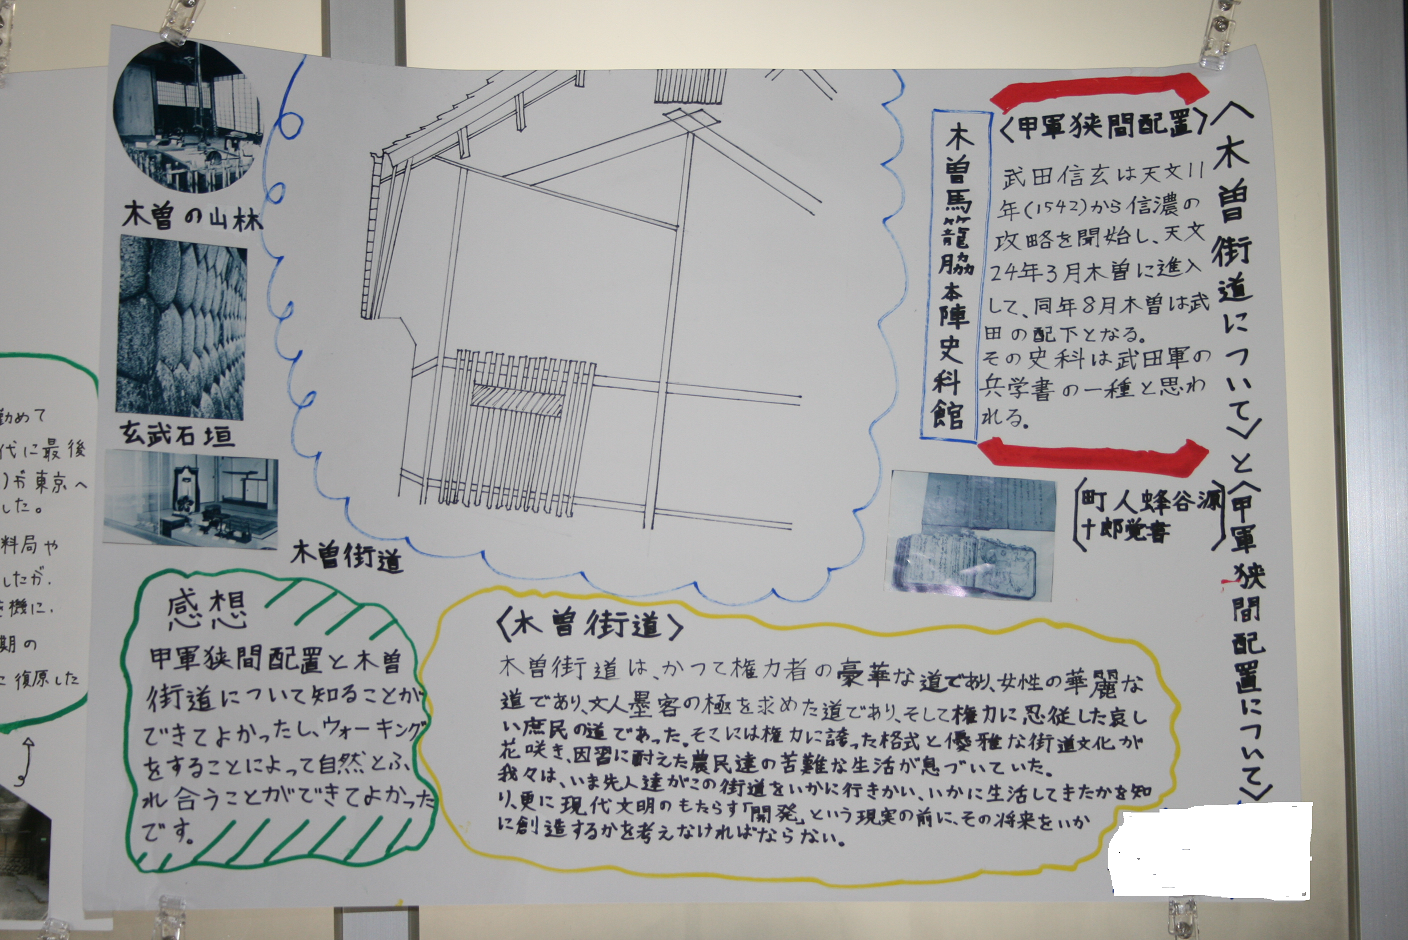 〈木曽街道について〉と〈甲軍狭間配置について〉
〈甲軍狭間配置〉
武田信玄は天文11
年(1542)から信濃の
攻略を開始し、天文
24年3月木曽に進入
して、同年8月木曽は武
田の配下となる。
その史科は武田軍の
兵学書の一種と思わ
れる。
木曽馬籠脇本陣史科館
町人蜂谷源
十郎覚書
木曽の山林
玄武石垣
木曽街道
感想
甲軍狭間配置と木曽
街道について知ることが
できてよかったし、ウォーキング
をすることによって自然とふ
れ合うことができてよかった
です。
〈木曽街道〉
木曽街道は、かつて権力者の豪華な道であり、女性の華麗な
道であり、文人墨客の極を求めた道であり、そして権力に忍従した哀し
い庶民の道であった。そこには権力に誇った格式と優雅な街道文化が
花咲き、因習に耐えた農民達の苦難な生活が息づいていた。
我々は、いま先人達がこの街道をいかに行きかい、いかに生活してきたかを知
り、更に現代文明のもたらす「開発」という現実の前に、その将来をいか
に創造するかを考えなければならない。
勧めて
代に最後
が東京へ
した。
料局や
したが、
機に、
期の
に復原した